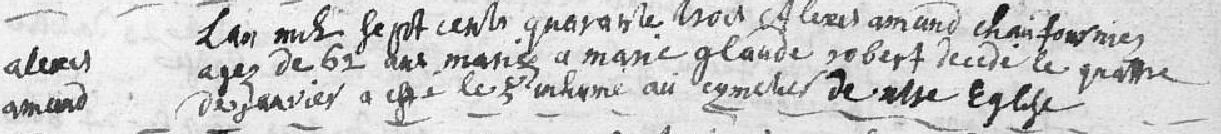 Lan mil sept cents quarante trois Alexis amand chaufournier
alexis agez de 62 ans mariez a marie glaude robert decedé le quattre
amand de janvier a esté le 5e inhumé au cymetier de nstre Eglise